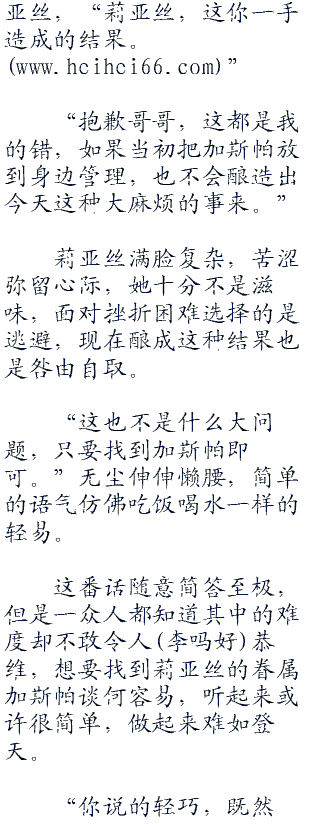 亚丝，“莉亚丝，这你一手
造成的结果。
(www.hcihci66.com)”
“抱歉哥哥，这都是我
的错，如果当初把加斯帕放
到身边管理，也不会酿造出
今天这种大麻烦的事来。”
莉亚丝满脸复杂，苦涩
弥留心际，她十分不是滋
味，面对挫折困难选择的是
逃避，现在酿成这种结果也
是咎由自取。
“这也不是什么大问
题，只要找到加斯帕即
可。”无尘伸伸懒腰，简单
的语气仿佛吃饭喝水一样的
轻易。
这番话随意简答至极，
但是一众人都知道其中的难
度却不敢令人(李吗好)恭
维，想要找到莉亚丝的眷属
加斯帕谈何容易，听起来或
许很简单，做起来难如登
天。
“你说的轻巧，既然